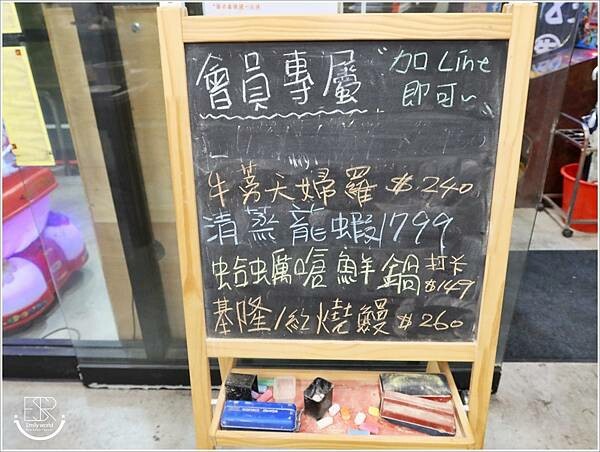 會員專屬
加Line
即可~
牛蒡天婦羅 $240
清蒸龍蝦1799
蛤蠣嗆鮮鍋 打卡
$149
基隆紅燒鰻 $260
ESR
Emily world